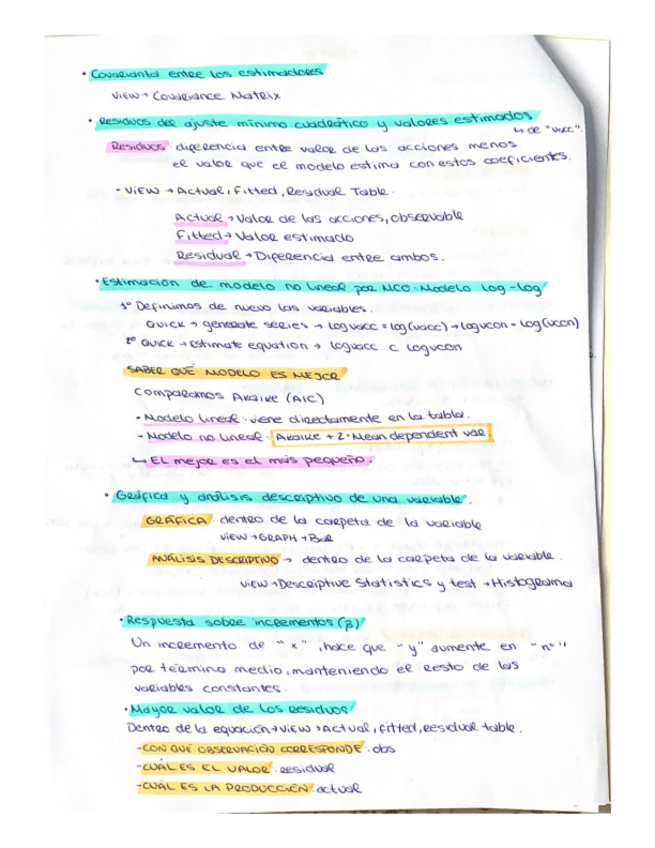 · Covarianza entre los estimadores.
View → Covariance Matrix
· Residuos del ajuste mínimo cuadrático y valores estimados
↳ de "vacc".
Residuos diferencia entre valor de las acciones menos
el valor que el modelo estima con estos coeficientes.
- View → Actual, Fitted, Residual Table.
Actual → Valor de las acciones, observable
Fitted → Valor estimado
Residual → Diferencia entre ambos.
· Estimación de modelo no lineal por MCO: Modelo Log-log
1º Definimos de nuevo las variables.
Quick → generate series → logvacc = log(vacc) → logvcon = log(vcon)
2º Quick → Estimate equation → logvacc c logvcon
SABER QUÉ MODELO ES MEJOR
Comparamos Akaike (AIC)
- Modelo lineal: viene directamente en la tabla.
- Modelo no lineal: Akaike + 2·Mean dependent var
↳ El mejor es el más pequeño.
· Gráfica y análisis descriptivo de una variable.
GRÁFICA: dentro de la carpeta de la variable
View → GRAPH → Bar
ANÁLISIS DESCRIPTIVO → dentro de la carpeta de la variable.
View → Descriptive Statistics y test → Histograma
· Respuesta sobre incrementos (β)
Un incremento de "x", hace que "y" aumente en "nº"
por término medio, manteniendo el resto de las
variables constantes.
· Mayor valor de los residuos
Dentro de la equación → View → Actual, fitted, residual table.
- CON QUÉ OBSERVACIÓN CORRESPONDE: obs
- CUÁL ES EL VALOR: residual
- CUÁL ES LA PRODUCCIÓN: actual